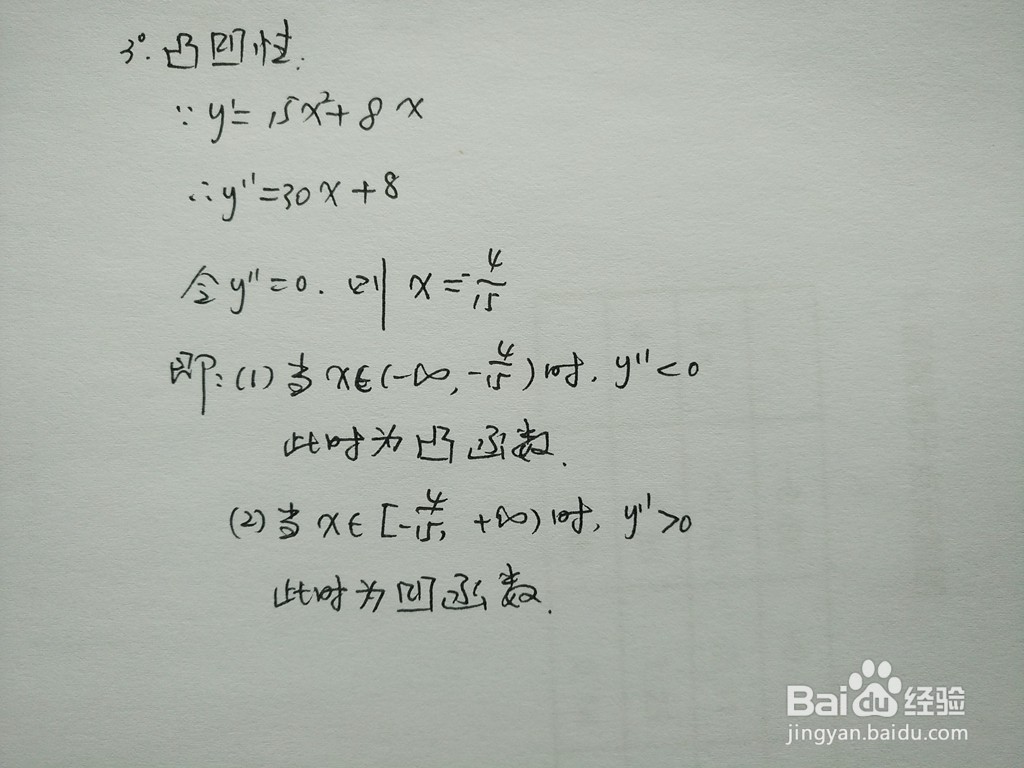 3°. 凸凹性.
∵ y'= 15x²+8x
∴ y''=30x+8
令y''=0. 则 x=-4/15
即: (1) 当 x∈(-∞, -4/15) 时, y''<0
此时为凸函数.
(2) 当 x∈[-4/15, +∞) 时, y''>0
此时为凹函数.
Baidu经验
jingyan.baidu.com